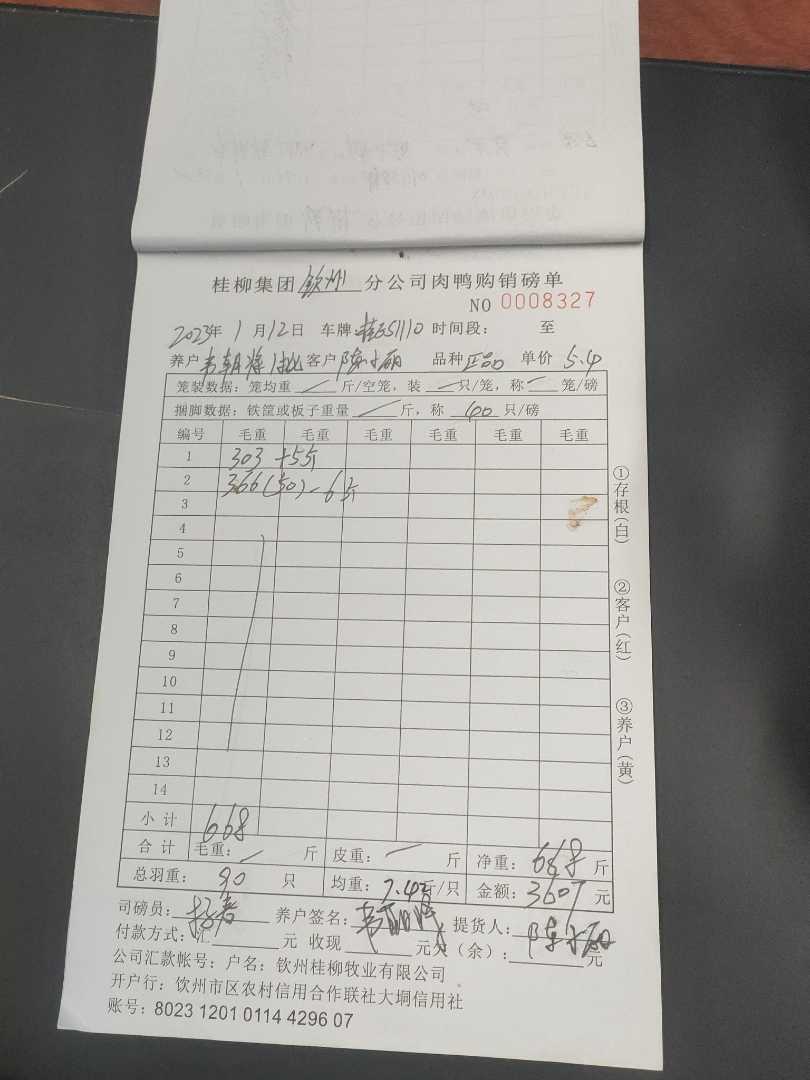 桂柳集团 钦州 分公司肉鸭购销磅单
NO 0008327
2023年 1月12日 车牌: 时间段: 至
养户 客户 陈小丽 品种 正品 单价 5.4
笼装数据: 笼均重 / 斤/空笼, 装 一 只/笼, 称 一 笼/磅
捆脚数据: 铁筐或板子重量 / 斤, 称 40 只/磅
编号 毛重 毛重 毛重 毛重 毛重 毛重
1 303 +5斤
2 366(50)-6斤
3
4
5
6
7
8
9
10
11
12
13
14
小计 668
合计 毛重: 斤 皮重: 斤 净重: 668 斤
总羽重: 90 只 均重: 7.42斤/只 金额: 3607 元
司磅员: 养户签名: 提货人: 陈小丽
付款方式: 汇 元 收现 元欠(余): 元
公司汇款帐号: 户名: 钦州桂柳牧业有限公司
开户行: 钦州市区农村信用合作联社大垌信用社
账号: 8023 1201 0114 4296 07
①存根(白)
②客户(红)
③养户(黄)